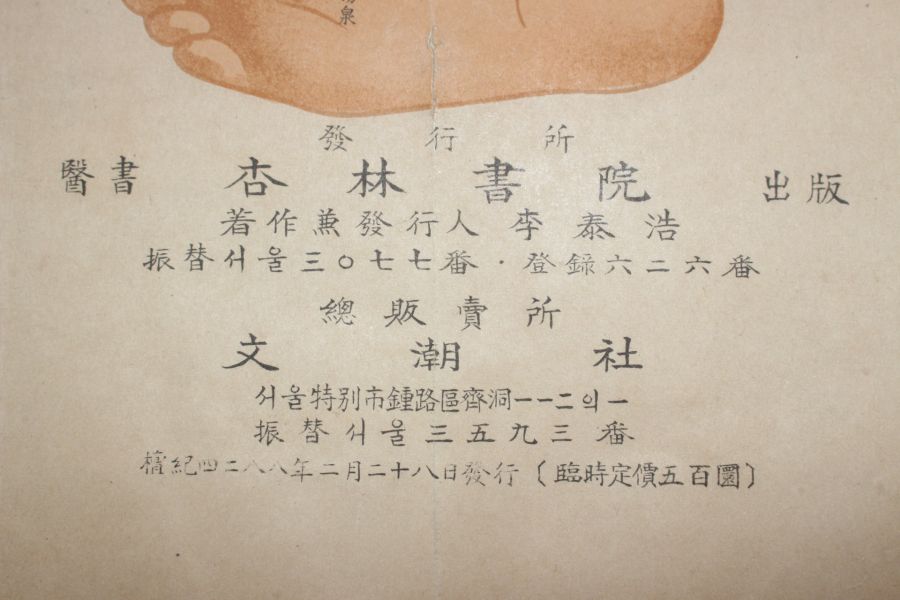 泉
發行所
醫書 杏林書院 出版
著作兼發行人 李泰浩
振替서울三〇七七番·登錄六二六番
總販賣所
文潮社
서울特別市鍾路區齊洞一一二의一
振替서울三五九三番
檀紀四二八八年二月二十八日發行(臨時定價五百圜)